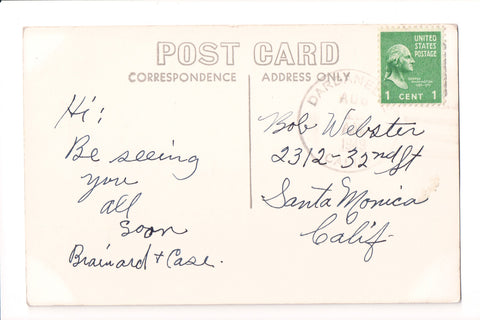 POST CARD
CORRESPONDENCE ADDRESS ONLY
UNITED STATES POSTAGE
1 CENT 1
AUG
Hi:
Be seeing
you
all
soon
Brainard + Case.
Bob Webster
2312-32nd St
Santa Monica
Calif.